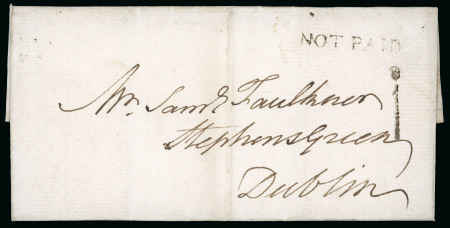 NOT PAID
1
Mr. Saml Faulkner
Stephens Green
Dublin